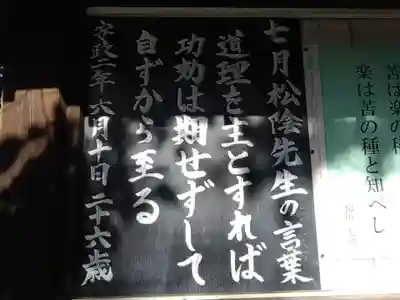 七月松陰先生の言葉
道理を主とすれば
功効は期せずして
自ずから至る
安政二年六月十日二十六歳
苦は楽の種
楽は苦の種と知べし